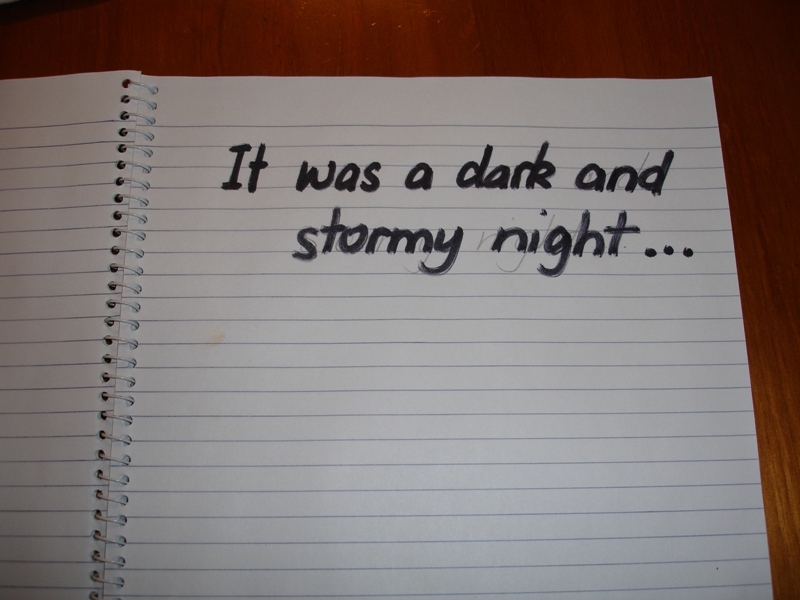 It was a dark and
stormy night...